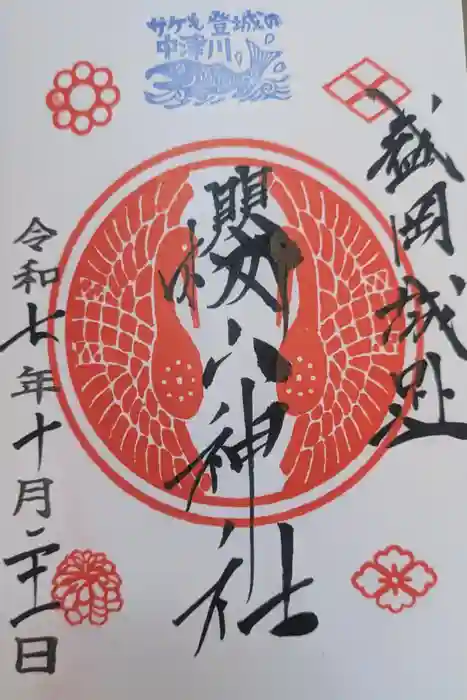 サケも登城の
中津川
盛岡城址
櫻山神社
令和七年十月二十一日